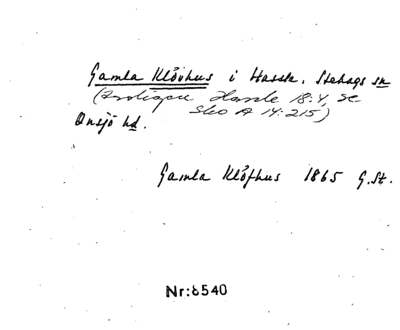 Gamla Klövhus i Hassle. Stehags sn
(troligen Hassle 18:4, se
Sko A 14:215)
Onsjö hd.
Gamla Klöfhus 1865 G.St.
Nr:6540